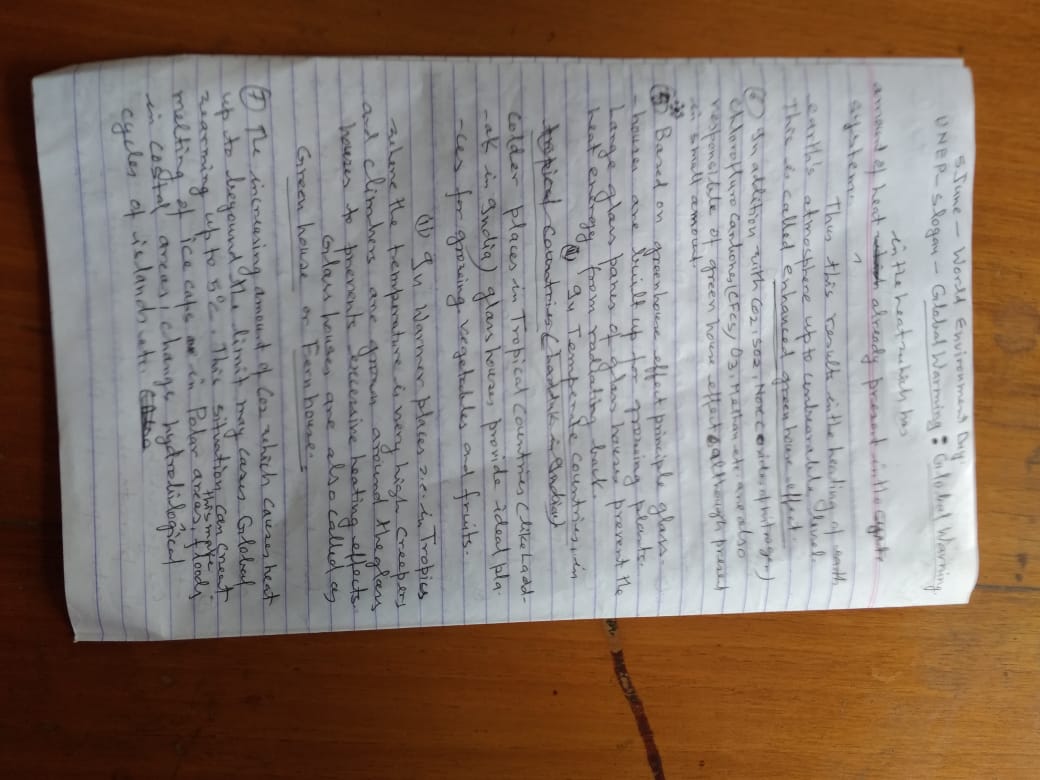 5 June - World Environment Day.
UNEP - Slogan - Global Warming : Global Warning
in the heat which has
amount of heat already present in the
system.
Thus this results in the heating of earth
earth's atmosphere up to unbearable level.
This is called enhanced green house effect.
(6) In addition with CO2, SO2, NOx (oxides of nitrogen)
Chlorofluro carbons (CFCs), O3, Methane etc are also
responsible of green house effect although present
in small amount.
(5) Based on greenhouse effect principle glass-
houses are built up for growing plants.
Large glass panes of glass house prevent the
heat energy from radiating back.
(i) In Temperate countries, in
colder places in Tropical Countries (like Ladd-
-ak in India) glass houses, provide ideal pla-
-ces for growing vegetables and fruits.
(ii) In Warmer places i.e. in Tropics
where the temperature is very high creepers
and climbers are grown around the glass
houses to prevents excessive heating effects.
Glass houses are also called as
Green house or Fern house.
(7) The increasing amount of CO2 which causes heat
up to begound the limit may cause Global
warming up to 5°C. This situation can creat
melting of ice caps in Polar areas, this make floods
in costal areas, change hydroliological
cycles of islands etc.